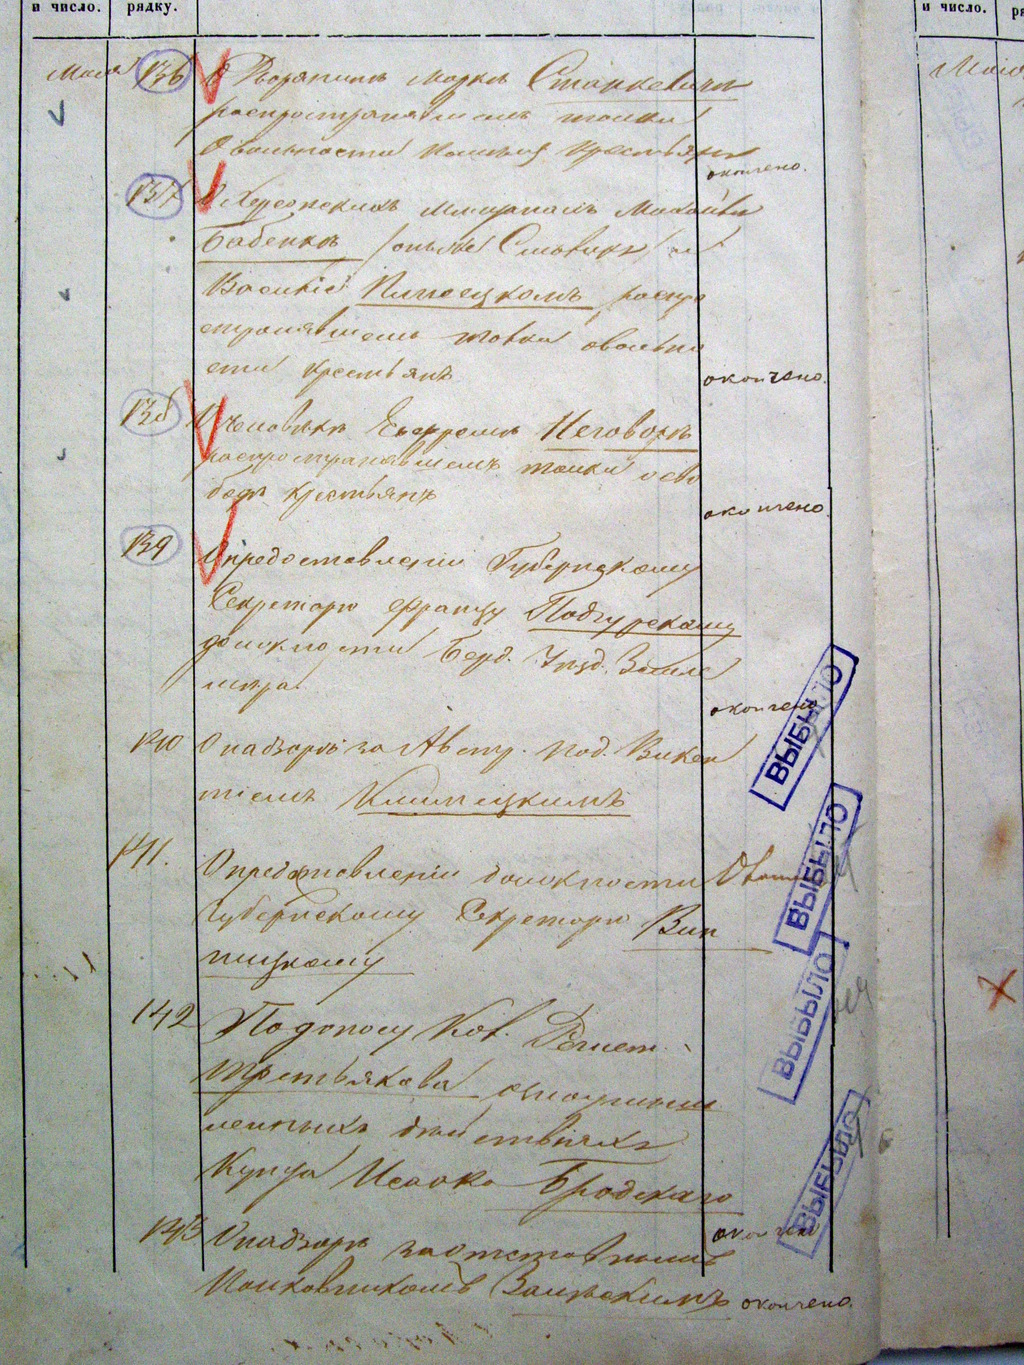 и число.
рядку.
и число.
Мая 136 О Дворянинѣ Марке Станкевичѣ
распространявшемъ толки
О вольности Помѣщ. Крестьянъ
окончено.
137 О Херсонскихъ Мѣщанахъ
Бабенкѣ
Василіѣ распро
странявшемъ толки о вольно
сти крестьянъ
окончено.
138 О человѣкѣ Ефремѣ Неговорѣ
распространявшемъ толки о сво
бодѣ крестьянъ
окончено.
139 О предоставленіи Губернскому
Секретарю Францу Подгурскому
должности Берд. Уѣзд. Землемѣра.
окончено
140 О надзорѣ за Австр. под. Викен
тіемъ Климецкимъ
ВЫБЫЛО
141. О предоставленіи должности
Губернскому Секретарю Вин
ницкому
ВЫБЫЛО
142 По доносу Кол. Регист.
Третьякова о злоумыш
ленныхъ дѣйствіяхъ
Купца Исаака Бродскаго
ВЫБЫЛО
окончено
143 О надзорѣ за отставнымъ
Полковникомъ Залѣскимъ окончено.
ВЫБЫЛО
Мая